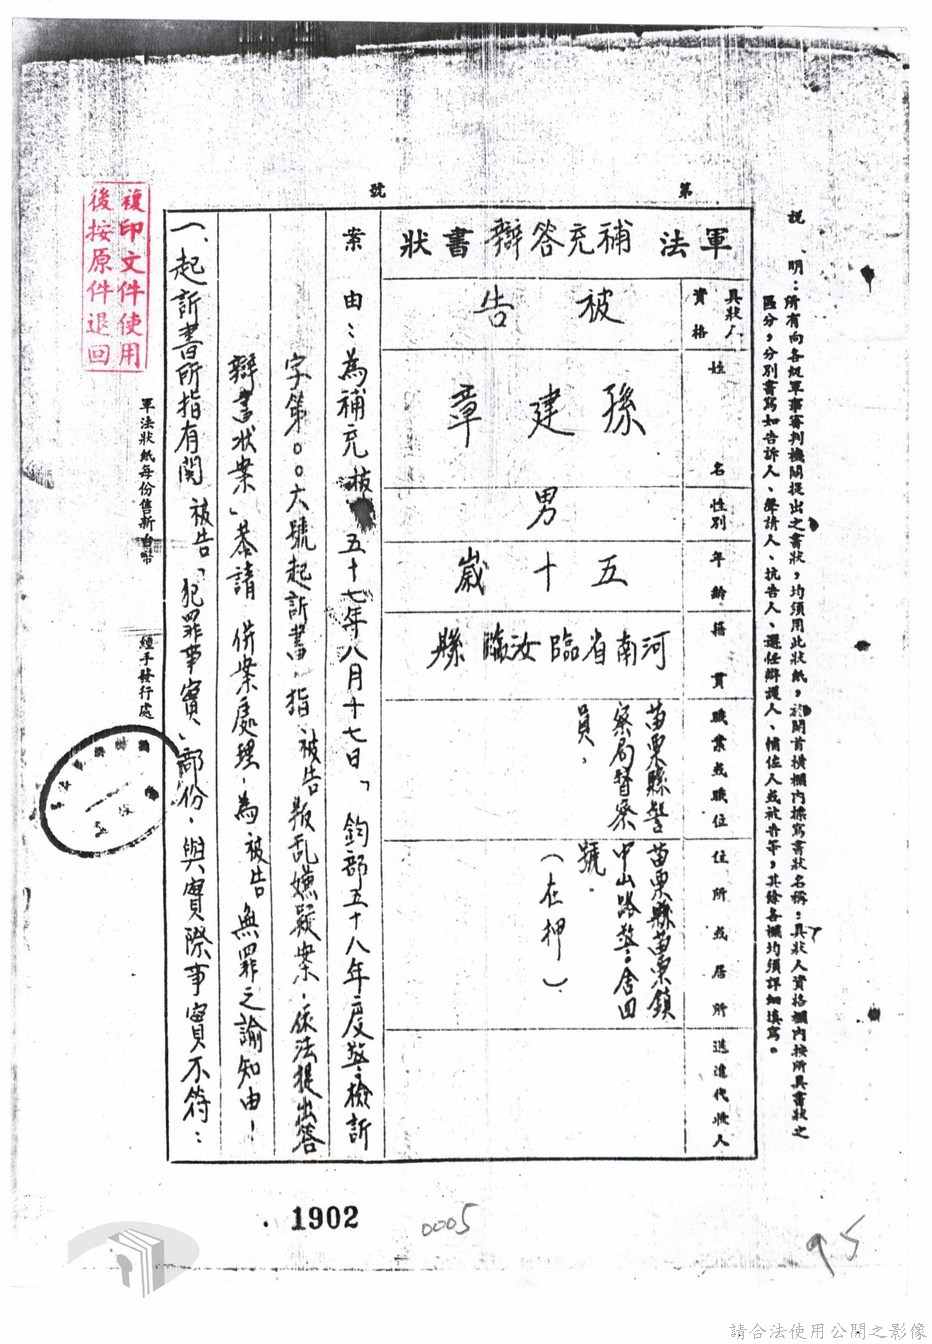 說 明：所有向各級軍事審判機關提出之書狀，均須用此狀紙，於開首橫欄內標寫書狀名稱；具狀人資格欄內按所具書狀之
區分，分別書寫如告訴人、聲請人、抗告人、選任辯護人、輔佐人或被告等，其餘各欄均須詳細填寫。
第 號
軍法 補充答辯 書狀
具狀人資格 被告
姓名 孫建章
性別 男
年齡 五十歲
籍貫 河南省臨汝縣
職業或職位 苗栗縣警
察局督察
員．
住所或居所 苗栗縣苗栗鎮
中山路警舍四
號．
（在押）
送達代收人
案由：為補充 五十七年八月十七日「鈞部五十八年度警檢訴
字第００六號起訴書．指 被告叛乱嫌疑案．依法提出答
辯書狀案」恭請 併案處理．為被告 無罪之諭知由！
一、起訴書所指有関 被告「犯罪事實」部份．與實際事實不符：
軍法狀紙每份售新台幣
經手發行處
複印文件使用
後按原件退回
1902
0005
95
請合法使用公開之影像